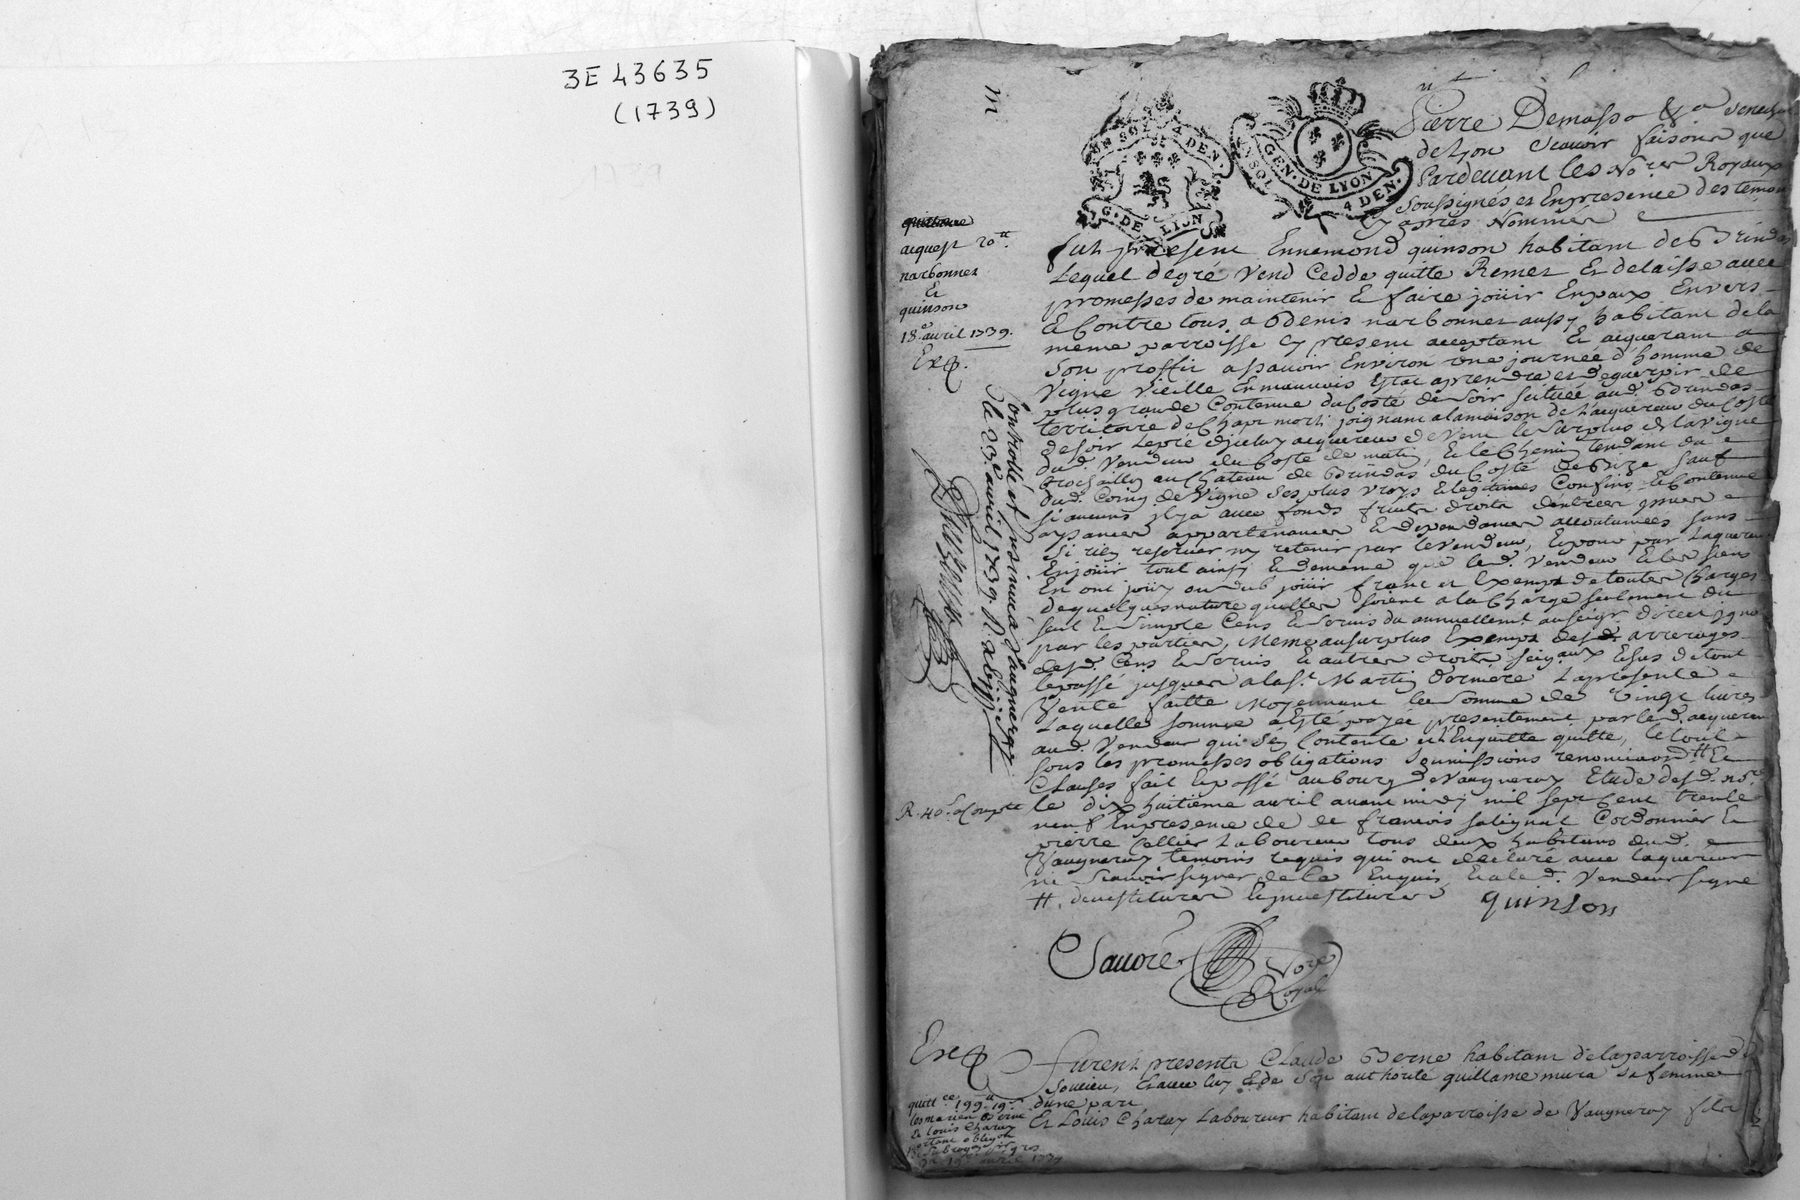 3E 43635
(1739)
m
UN SOL 4 DEN.
G. DE LION
GEN. DE LYON
4 DEN.
Pierre Demasso &a senechal
de Lyon scauoir faisons que
Pardeuant les Nores Royaux
soussignés et En presence des temoins
cy apres Nommes
quittance
acquest 20tt
narbonnet
Et
quinson
18e auril 1739.
Exp.
fut present Ennemond quinson habitant de Brindas
Lequel de gré vend Cedde quitte Remet Et delaisse auec
promesses de maintenir & faire joüir En paix Enuers
& Contre tous, a Denis narbonnet aussy habitant de la
meme parroisse cy present acceptant Et acquerant a
son proffit assauoir Enuiron vne journée d'homme de
vigne vieille En mauuois Estat a prendre et deguerpir de
plus grande Contenue du Costé de soir scituée aud. Brindas
territoire de Chape mort joignant a la maison de L'acquereur du Costé
de soir Le pré diceluy acquereur de vent le surplus de la vigne
dud. vendeur du Costé de matin, Et le Chemin tendant de
au Château de Brindas du Costé de Bize sauf
dud. Coing de vigne ses plus vrays & legitimes Confins, & Contenue
si aucuns il y a auec fonds fruits droits d'entrées issues
aysances appartenances & dependances accoutumées sans
si rien reseruer ny retenir par le vendeur, Et pour par Lacquereur
En joüir tout ainsy & de meme que led. vendeur & les siens
En ont joüy ou dub joüir franc et Exempt de toutes Charges
de quelques nature quelles soient a la Charge seulement du
seul & simple Cens & seruis du annuellement au seigr direct ignoré
par les parties, Meme au surplus Exempt desd. arrerages
desd. Cens & seruis & autres droits seigaux Et sus de tout
le passé jusques a la St. Martin derniere La presente
Vente faitte Moyennant la somme de Vingt liures
Laquelle somme a Esté payée presentement par led. acquereur
aud. Vendeur qui s'en Contente et L'en quitte quitte, le tout
sous les promesses obligations soumissions renonciaon # Et
Clauses fait & passé au bourg de Vaugneray Etude desd. nores
le dix huitième auril auant midy mil sept Cent trente
neuf En presence de françois salignat Cordonnier &
pierre Cellier Laboureur tous deux habitans dud.
Vaugneray temoins requis qui ont déclaré auec laquereur
ne scauoir signer de ce Enquis Et a led. Vendeur signé
#. deuestitures & inuestitures
quinson
Controllé et insinué a Vaugneray
le 23e auril 1739. R.
R. 40s a Compte
Sauore
Nore
Royal
Exp
furent presents Claude Berne habitant de la parroisse de
Soucieu, & auec luy & de son authorité guillame mura sa femme
d'une part
Et Loüis Charay Laboureur habitant de la parroisse de Vaugneray fils
quittce 199tt 19s
les mariés Berne
& loüis Charay
19e auril 1739